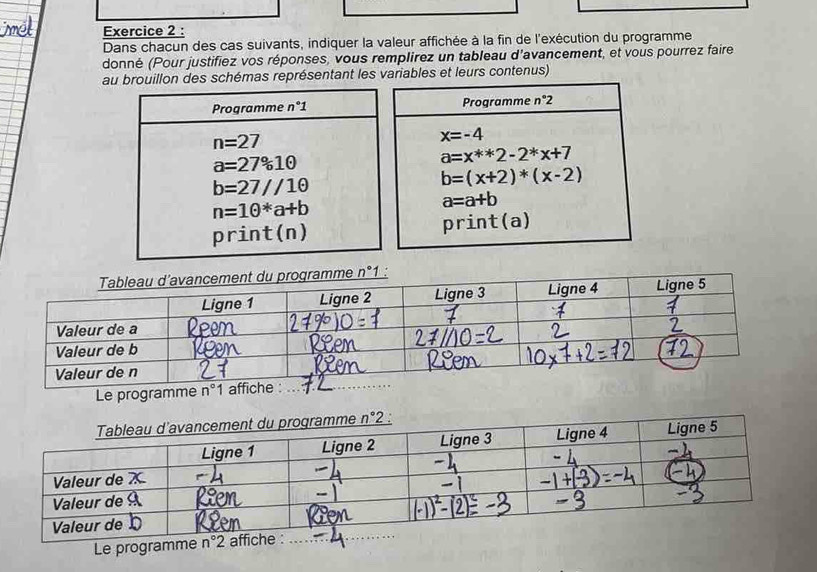 imel
Exercice 2 :
Dans chacun des cas suivants, indiquer la valeur affichée à la fin de l'exécution du programme
donné (Pour justifiez vos réponses, vous remplirez un tableau d'avancement, et vous pourrez faire
au brouillon des schémas représentant les variables et leurs contenus)
Programme n°1
n=27
a=27%10
b=27//10
n=10*a+b
print(n)
Programme n°2
x=-4
a=x**2-2*x+7
b=(x+2)*(x-2)
a=a+b
print(a)
Tableau d'avancement du programme n°1 :
Ligne 1 Ligne 2 Ligne 3 Ligne 4 Ligne 5
Valeur de a Rien 27%10=7 7 7 7
Valeur de b Rien Rien 27//10=2 2 2
Valeur de n 27 Rien Rien 10x7+2=72 72
Le programme n°1 affiche : ...72...
Tableau d'avancement du programme n°2 :
Ligne 1 Ligne 2 Ligne 3 Ligne 4 Ligne 5
Valeur de x -4 -4 -4 -4 -4
Valeur de a Rien -1 -1 -1+(-3)=-4 -4
Valeur de b Rien Rien (-1)²-(2)²=-3 -3 -3
Le programme n°2 affiche : ...-4...